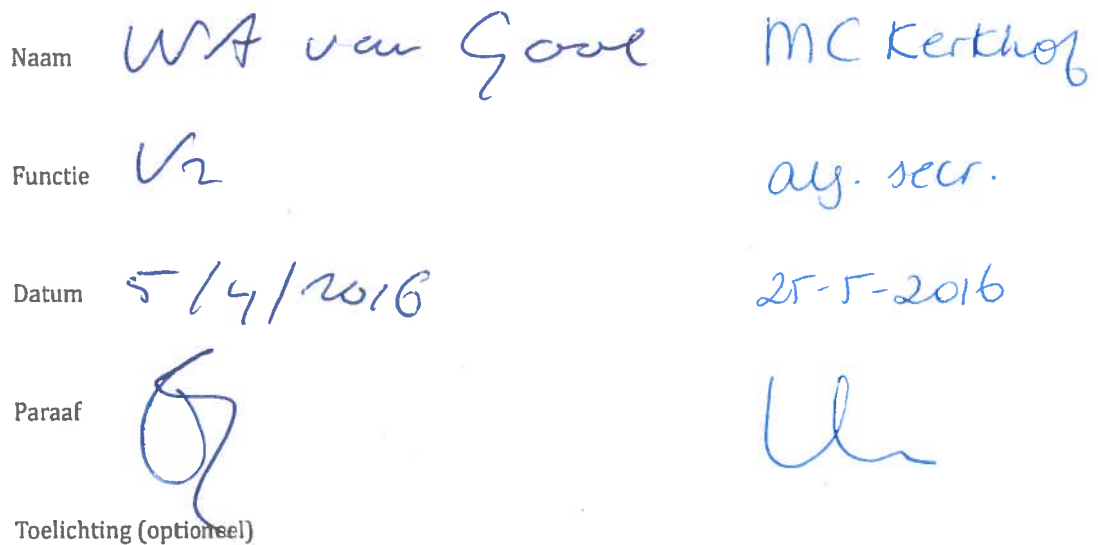 Naam WA van Gool MC Kerkhof
Functie Vz alg. secr.
Datum 5/4/2016 25-5-2016
Paraaf
Toelichting (optioneel)